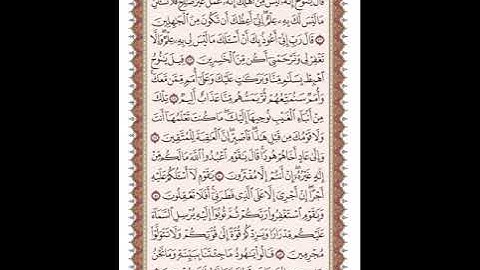 قَالَ يَٰنُوحُ إِنَّهُۥ لَيْسَ مِنْ أَهْلِكَ إِنَّهُۥ عَمَلٌ غَيْرُ صَٰلِحٍ فَلَا تَسْـَٔلْنِ
مَا لَيْسَ لَكَ بِهِۦ عِلْمٌ إِنِّىٓ أَعِظُكَ أَن تَكُونَ مِنَ ٱلْجَٰهِلِينَ
۝ قَالَ رَبِّ إِنِّىٓ أَعُوذُ بِكَ أَنْ أَسْـَٔلَكَ مَا لَيْسَ لِى بِهِۦ عِلْمٌ وَإِلَّا
تَغْفِرْ لِى وَتَرْحَمْنِىٓ أَكُن مِّنَ ٱلْخَٰسِرِينَ ۝ قِيلَ يَٰنُوحُ
ٱهْبِطْ بِسَلَٰمٍ مِّنَّا وَبَرَكَٰتٍ عَلَيْكَ وَعَلَىٰٓ أُمَمٍ مِّمَّن مَّعَكَ
وَأُمَمٌ سَنُمَتِّعُهُمْ ثُمَّ يَمَسُّهُم مِّنَّا عَذَابٌ أَلِيمٌ ۝ تِلْكَ
مِنْ أَنۢبَآءِ ٱلْغَيْبِ نُوحِيهَآ إِلَيْكَ مَا كُنتَ تَعْلَمُهَآ أَنتَ
وَلَا قَوْمُكَ مِن قَبْلِ هَٰذَا فَٱصْبِرْ إِنَّ ٱلْعَٰقِبَةَ لِلْمُتَّقِينَ
۝ وَإِلَىٰ عَادٍ أَخَاهُمْ هُودًا قَالَ يَٰقَوْمِ ٱعْبُدُوا۟ ٱللَّهَ مَا لَكُم مِّنْ
إِلَٰهٍ غَيْرُهُۥٓ إِنْ أَنتُمْ إِلَّا مُفْتَرُونَ ۝ يَٰقَوْمِ لَآ أَسْـَٔلُكُمْ عَلَيْهِ
أَجْرًا إِنْ أَجْرِىَ إِلَّا عَلَى ٱلَّذِى فَطَرَنِىٓ أَفَلَا تَعْقِلُونَ ۝
وَيَٰقَوْمِ ٱسْتَغْفِرُوا۟ رَبَّكُمْ ثُمَّ تُوبُوٓا۟ إِلَيْهِ يُرْسِلِ ٱلسَّمَآءَ
عَلَيْكُم مِّدْرَارًا وَيَزِدْكُمْ قُوَّةً إِلَىٰ قُوَّتِكُمْ وَلَا تَتَوَلَّوْا۟
مُجْرِمِينَ ۝ قَالُوا۟ يَٰهُودُ مَا جِئْتَنَا بِبَيِّنَةٍ وَمَا نَحْنُ